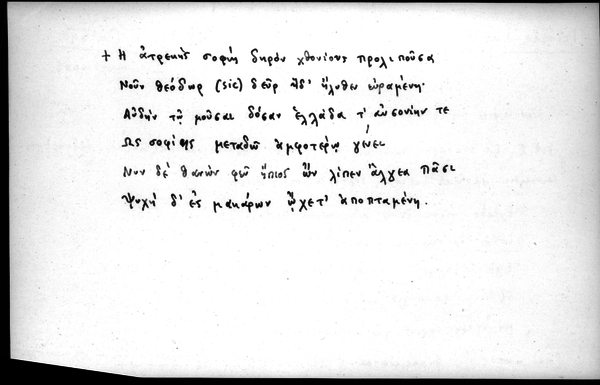 + Ἡ ἀτρεκὴς σοφίη δηρὸν χθονίους προλιποῦσα
Νοῦν θεόδωρ (sic) δεῦρ' ἥδ' ἤλυθεν εὑραμένη.
Αὐδὴν τῷ μοῦσαι δόσαν ἑλλάδα τ' αὐσονίην τε
Ὡς σοφίης μεταδῶ ἀμφοτέρῳ γένει
Νῦν δὲ θανὼν φῶ ἤπιος ὢν λίπεν ἄλγεα πᾶσι
Ψυχὴ δ' ἐς μακάρων ᾤχετ' ἀποπταμένη.